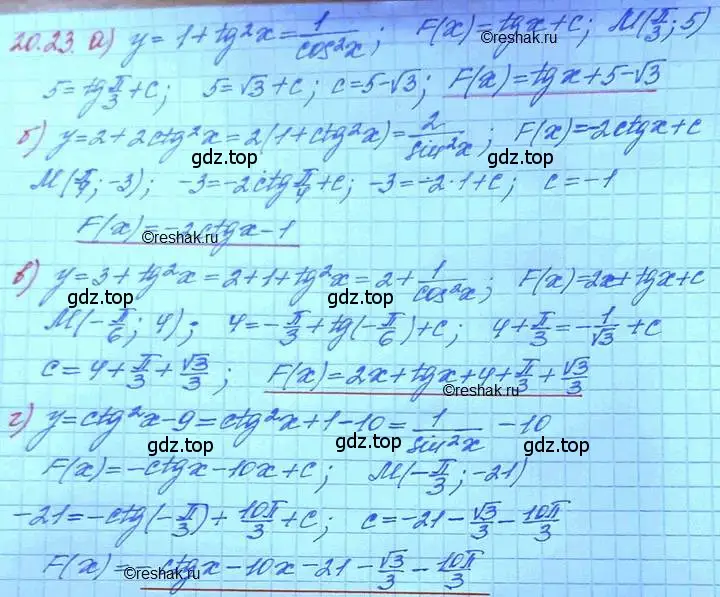 20.23. а) y = 1 + tg²x = 1/cos²x; F(x) = tgx + c; M(π/3; 5)
5 = tg π/3 + c; 5 = √3 + c; c = 5 - √3; F(x) = tgx + 5 - √3
б) y = 2 + 2ctg²x = 2(1 + ctg²x) = 2/sin²x; F(x) = -2ctgx + c
gdz.top gdz.top gdz.top
M(π/4; -3); -3 = -2ctg π/4 + c; -3 = -2·1 + c; c = -1
F(x) = -2ctgx - 1
©reshak.ru
в) y = 3 + tg²x = 2 + 1 + tg²x = 2 + 1/cos²x; F(x) = 2x + tgx + c
gdz.top gdz.top gdz.top
M(-π/6; 4); 4 = -π/3 + tg(-π/6) + c; 4 + π/3 = -1/√3 + c
c = 4 + π/3 + √3/3; F(x) = 2x + tgx + 4 + π/3 + √3/3
©reshak.ru
г) y = ctg²x - 9 = ctg²x + 1 - 10 = 1/sin²x - 10
gdz.top gdz.top gdz.top
F(x) = -ctgx - 10x + c; M(-π/3; -21)
-21 = -ctg(-π/3) + 10π/3 + c; c = -21 - √3/3 - 10π/3
F(x) = -ctgx - 10x - 21 - √3/3 - 10π/3
©reshak.ru
gdz.top gdz.top gdz.top